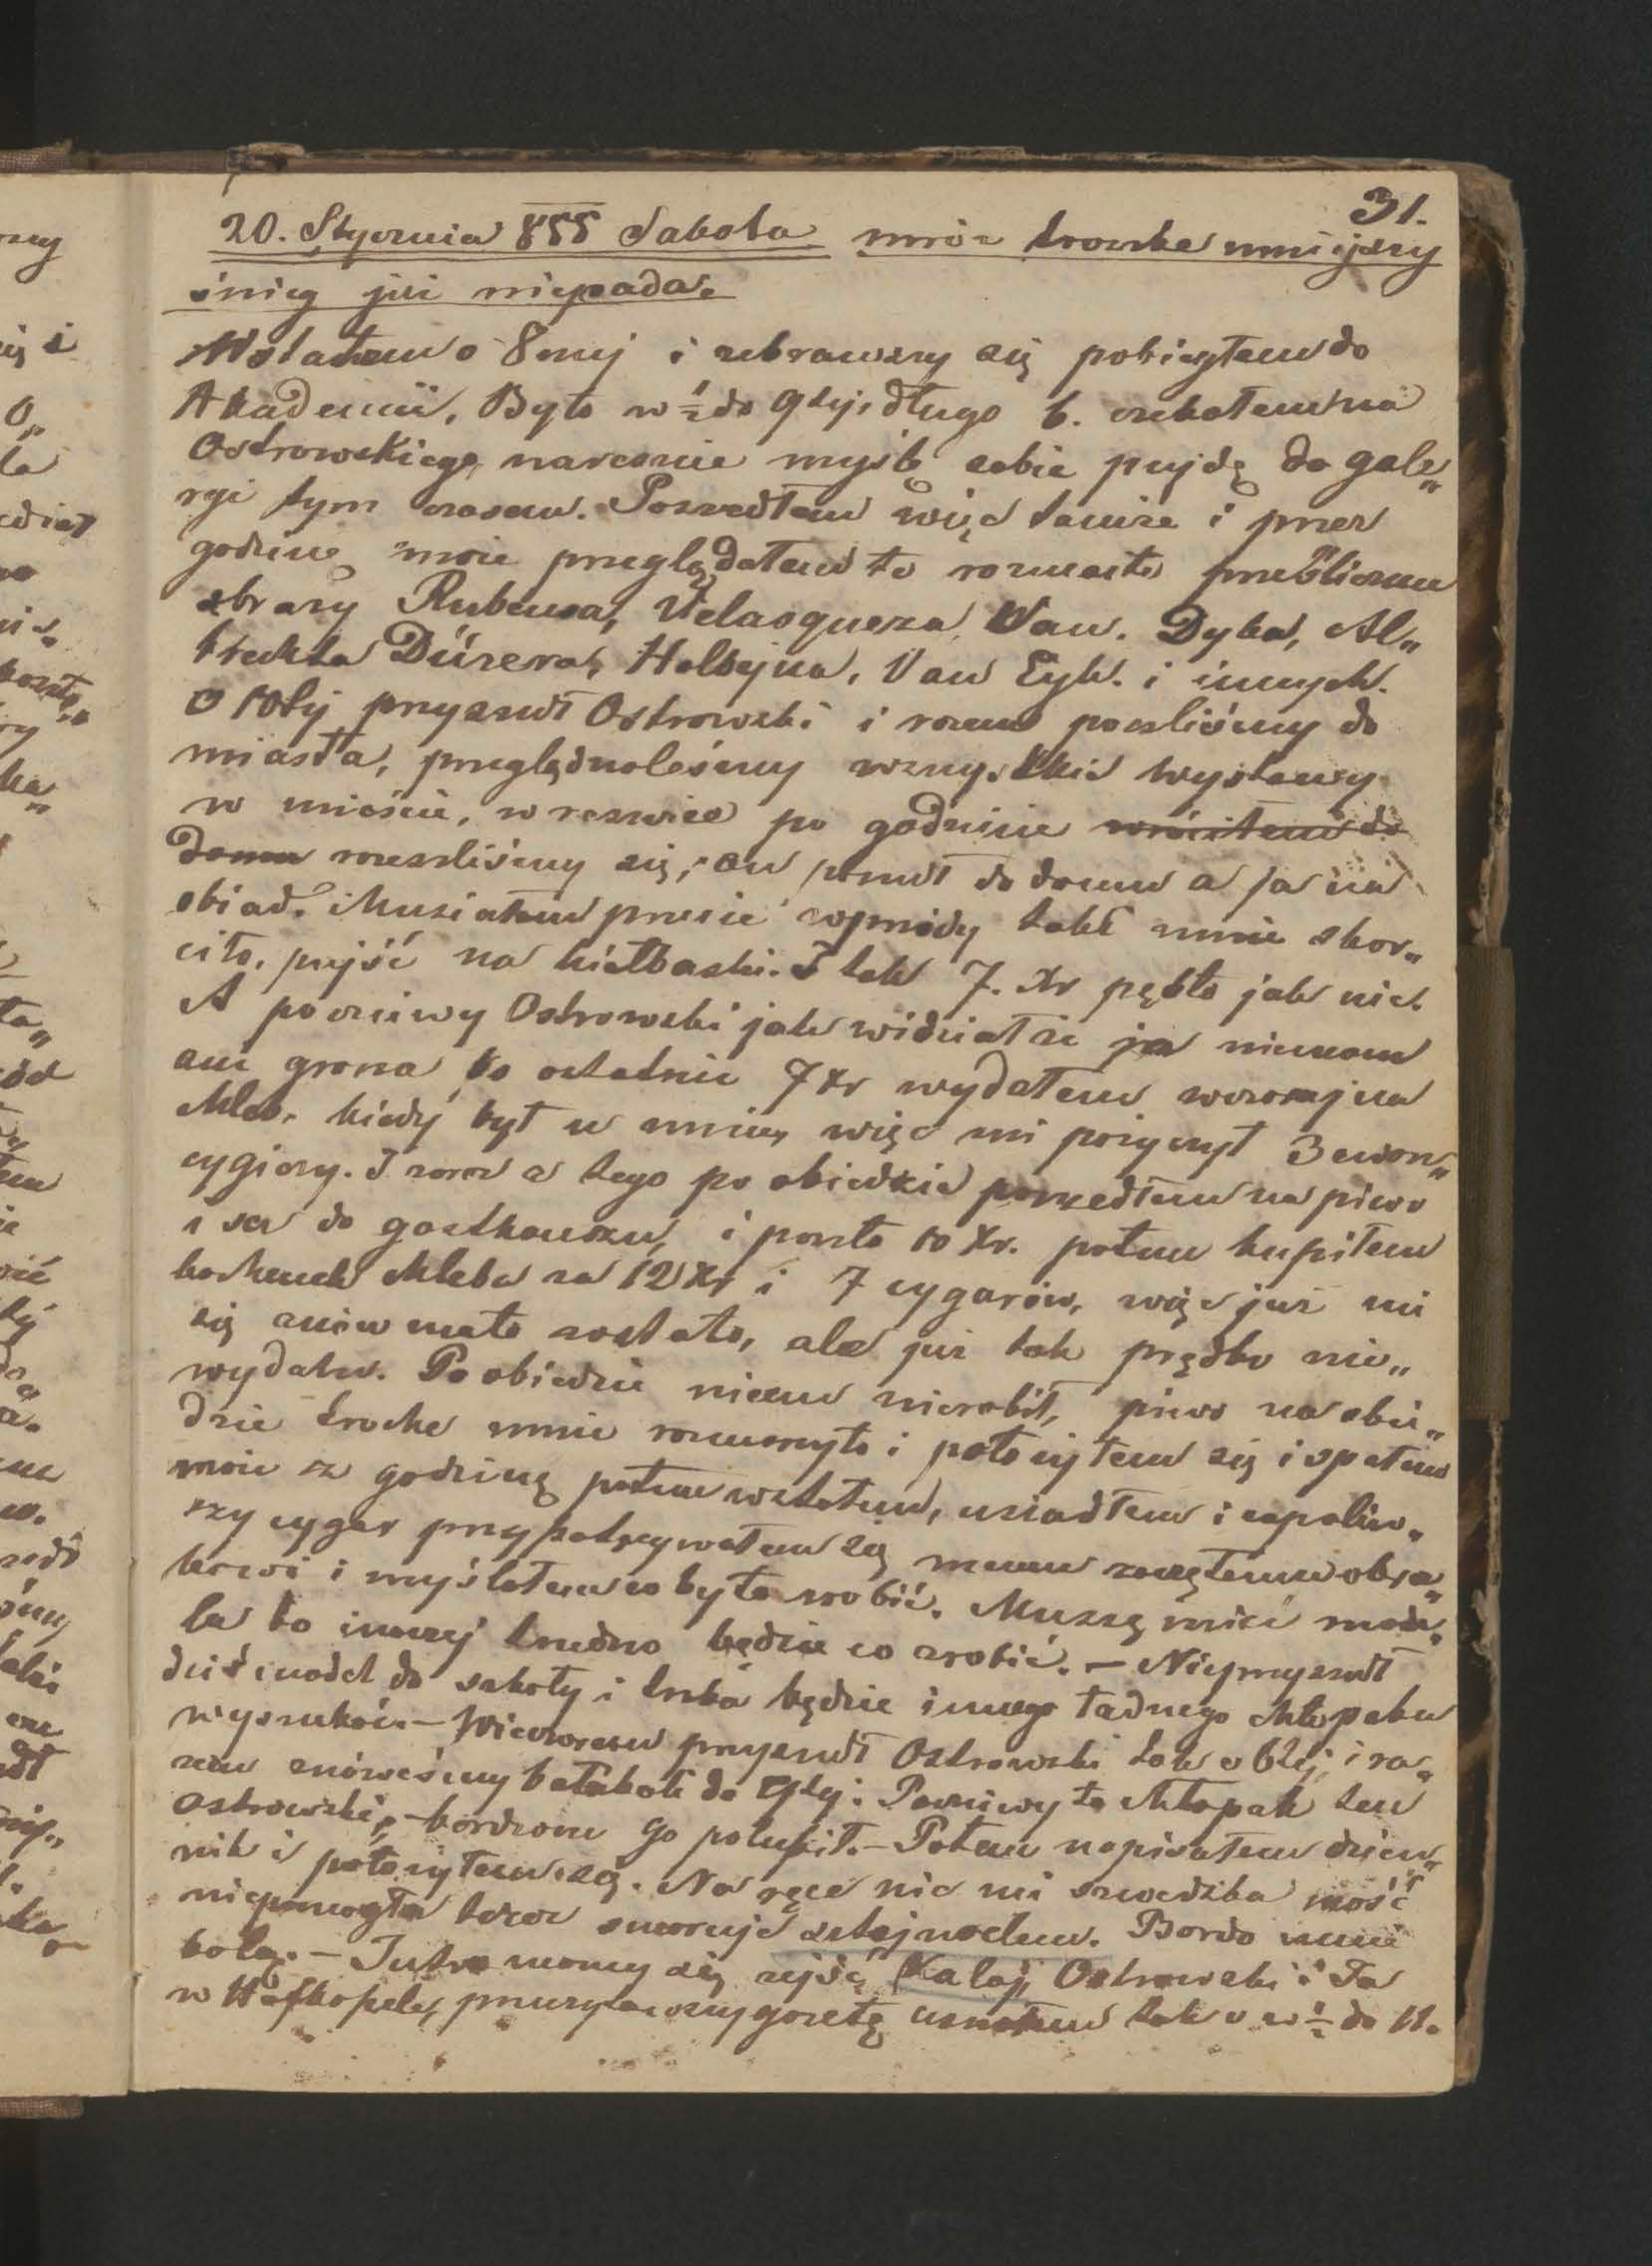 31.
20. Stycznia 855 Sabota mróz troszke mniejszy
śnieg już niepada.
Wstałem o 8mej i zebrawszy się pobiegłem do
Akademii, Było w ½ do 9tej, długo b. czekałem na
Ostrowskiego, nareszcie myślę sobie pujdę do gale„
ryi tym czasem. Poszedłem więc tamże i przez
godzinę może przeglądałem te rozmaite prześliczne
obrazy Rubensa, Velasqueza, Van. Dyka, Al„
brechta Dürera, Holbejna, Van Eyk. i innych.
O 10tej przyszedł Ostrowski i razem poszliśmy do
miasta, przeglądneleśmy wszystkie wystawy
w mieście, w reszcie po godzinie wróciłem do
domu rozeszliśmy się, on poszedł do domu a ja na
obiad. Musiałem przecie wprzódy takt mnie skor„
ciło, pujść na kiełbaski. I tak 7. Xr pękło jak nic.
A poczciwy Ostrowski jak widział że ja niemam
ani grosza bo ostatnie 7 Xr wydałem wczoraj na
chleb, kiedy był u mnie, więc mi pożyczył 3 cwan„
cygiery. I zaraz z tego po obiedzie poszedłem na piwo
i ser do gasthauzu, i poszło 10 Xr. potem kupiłem
bochenek chleba za 12 Xr i 7 cygarów, więc już mi
się znów mało zostało, ale już tak prędko nie„
wydałem. Po obiedzie niceem nierobił, piwo na obie„
dzie troche mnie rozmarzyło i położyłem się i spałem
może z godzinę potem wstałem, usiadłem i zapaliw„
szy cygar przypatrywałem się memu zaczętemu obra„
kowi i myślałem co by to zrobić. Muszę mieć mode„
la bo inaczej trudno będzie co zrobić. – Nieprzyszedł
dziś model do szkoły i trzba będzie innego ładnego chłopaka
wyszukać. – Wieczorem przyszedł Ostrowski tak o 6tej, i ra„
zem znóweśmy bałakali do 9tej. Poczciwy to chłopak ten
Ostrowski, – bardzom go polubił. – Potem napisałem dzien„
nik i położyłem się. Na ręce nic mi szwedzka maść
niepomogła teraz smaruje sztajnoelem. Bardo mnie
bolą. – Jutro mamy się zejść Kalaj, Ostrowski i Ja
w Hofkapele, przeczytawszy gazetę usnołem tak o w ½ do 11.